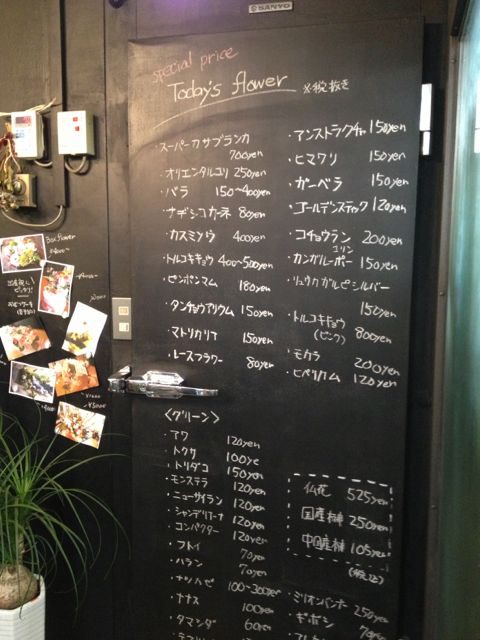 SANYO
special price
Today's flower ※税抜き
・スーパーカサブランカ
700yen
・オリエンタルユリ 250yen
・バラ 150~400yen
・ナデシコカーネ 80yen
・カスミソウ 400yen
・トルコキキョウ 400~500yen
・ピンポンマム 180yen
・タンチョウアリウム 150yen
・マトリカリア 150yen
・レースフラワー 80yen
・アンストラクチャ 150yen
・ヒマワリ 150yen
・ガーベラ 150yen
・ゴールデンスティック 120yen
・コチョウラン 200yen
1リン
・カンガルーポー 150yen
・リュウカデンドロン
150yen
・トルコキキョウ 800yen
(ピンク)
・モカラ 200yen
・ヒペリカム 120yen
<グリーン>
・アワ 120yen
・トクサ 100ye
・トリダコ 150yen
・モンステラ 120yen
・ニューサイラン 120yen
・シャンデリアーナ 120yen
・コンパクター 120yen
・フトイ 70yen
・ハラン 70yen
・ナツハゼ 100~300yen
・ナナス 100yen
・タマシダ 60yen
仏花 525yen
国産榊 250yen
中国産榊 105yen
(税込)
・ミリオンバンブー 250yen
・ギボシ
Box flower